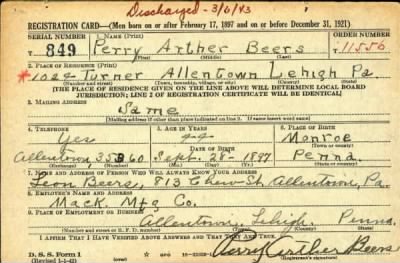 Discharged - 3/6/43
REGISTRATION CARD—(Men born on or after February 17, 1897 and on or before December 31, 1921)
SERIAL NUMBER 1. NAME (Print) ORDER NUMBER
849 Perry Arther Beers 11556
(First) (Middle) (Last)
2. PLACE OF RESIDENCE (Print)
*1024 Turner Allentown Lehigh Pa.
(Number and street) (Town, township, village, or city) (County) (State)
[THE PLACE OF RESIDENCE GIVEN ON THE LINE ABOVE WILL DETERMINE LOCAL BOARD
JURISDICTION; LINE 2 OF REGISTRATION CERTIFICATE WILL BE IDENTICAL]
3. MAILING ADDRESS
Same
[Mailing address if other than place indicated on line 2. If same insert word same]
4. TELEPHONE 5. AGE IN YEARS 6. PLACE OF BIRTH
Yes 44 Monroe
DATE OF BIRTH
Allentown Sept. 28- 1897 Penna.
7. NAME AND ADDRESS OF PERSON WHO WILL ALWAYS KNOW YOUR ADDRESS
Leon Beers, 813 Chew St. Allentown, Pa.
8. EMPLOYER'S NAME AND ADDRESS
Mack Mfg Co.
9. PLACE OF EMPLOYMENT OR BUSINESS
Allentown, Lehigh, Penna.
(Number and street or R. F. D. number) (Town) (County) (State)
I AFFIRM THAT I HAVE VERIFIED ABOVE ANSWERS AND THAT THEY ARE TRUE.
D. S. S. Form 1
(Revised 1-1-42) Perry Arther Beers
(Registrant's signature)